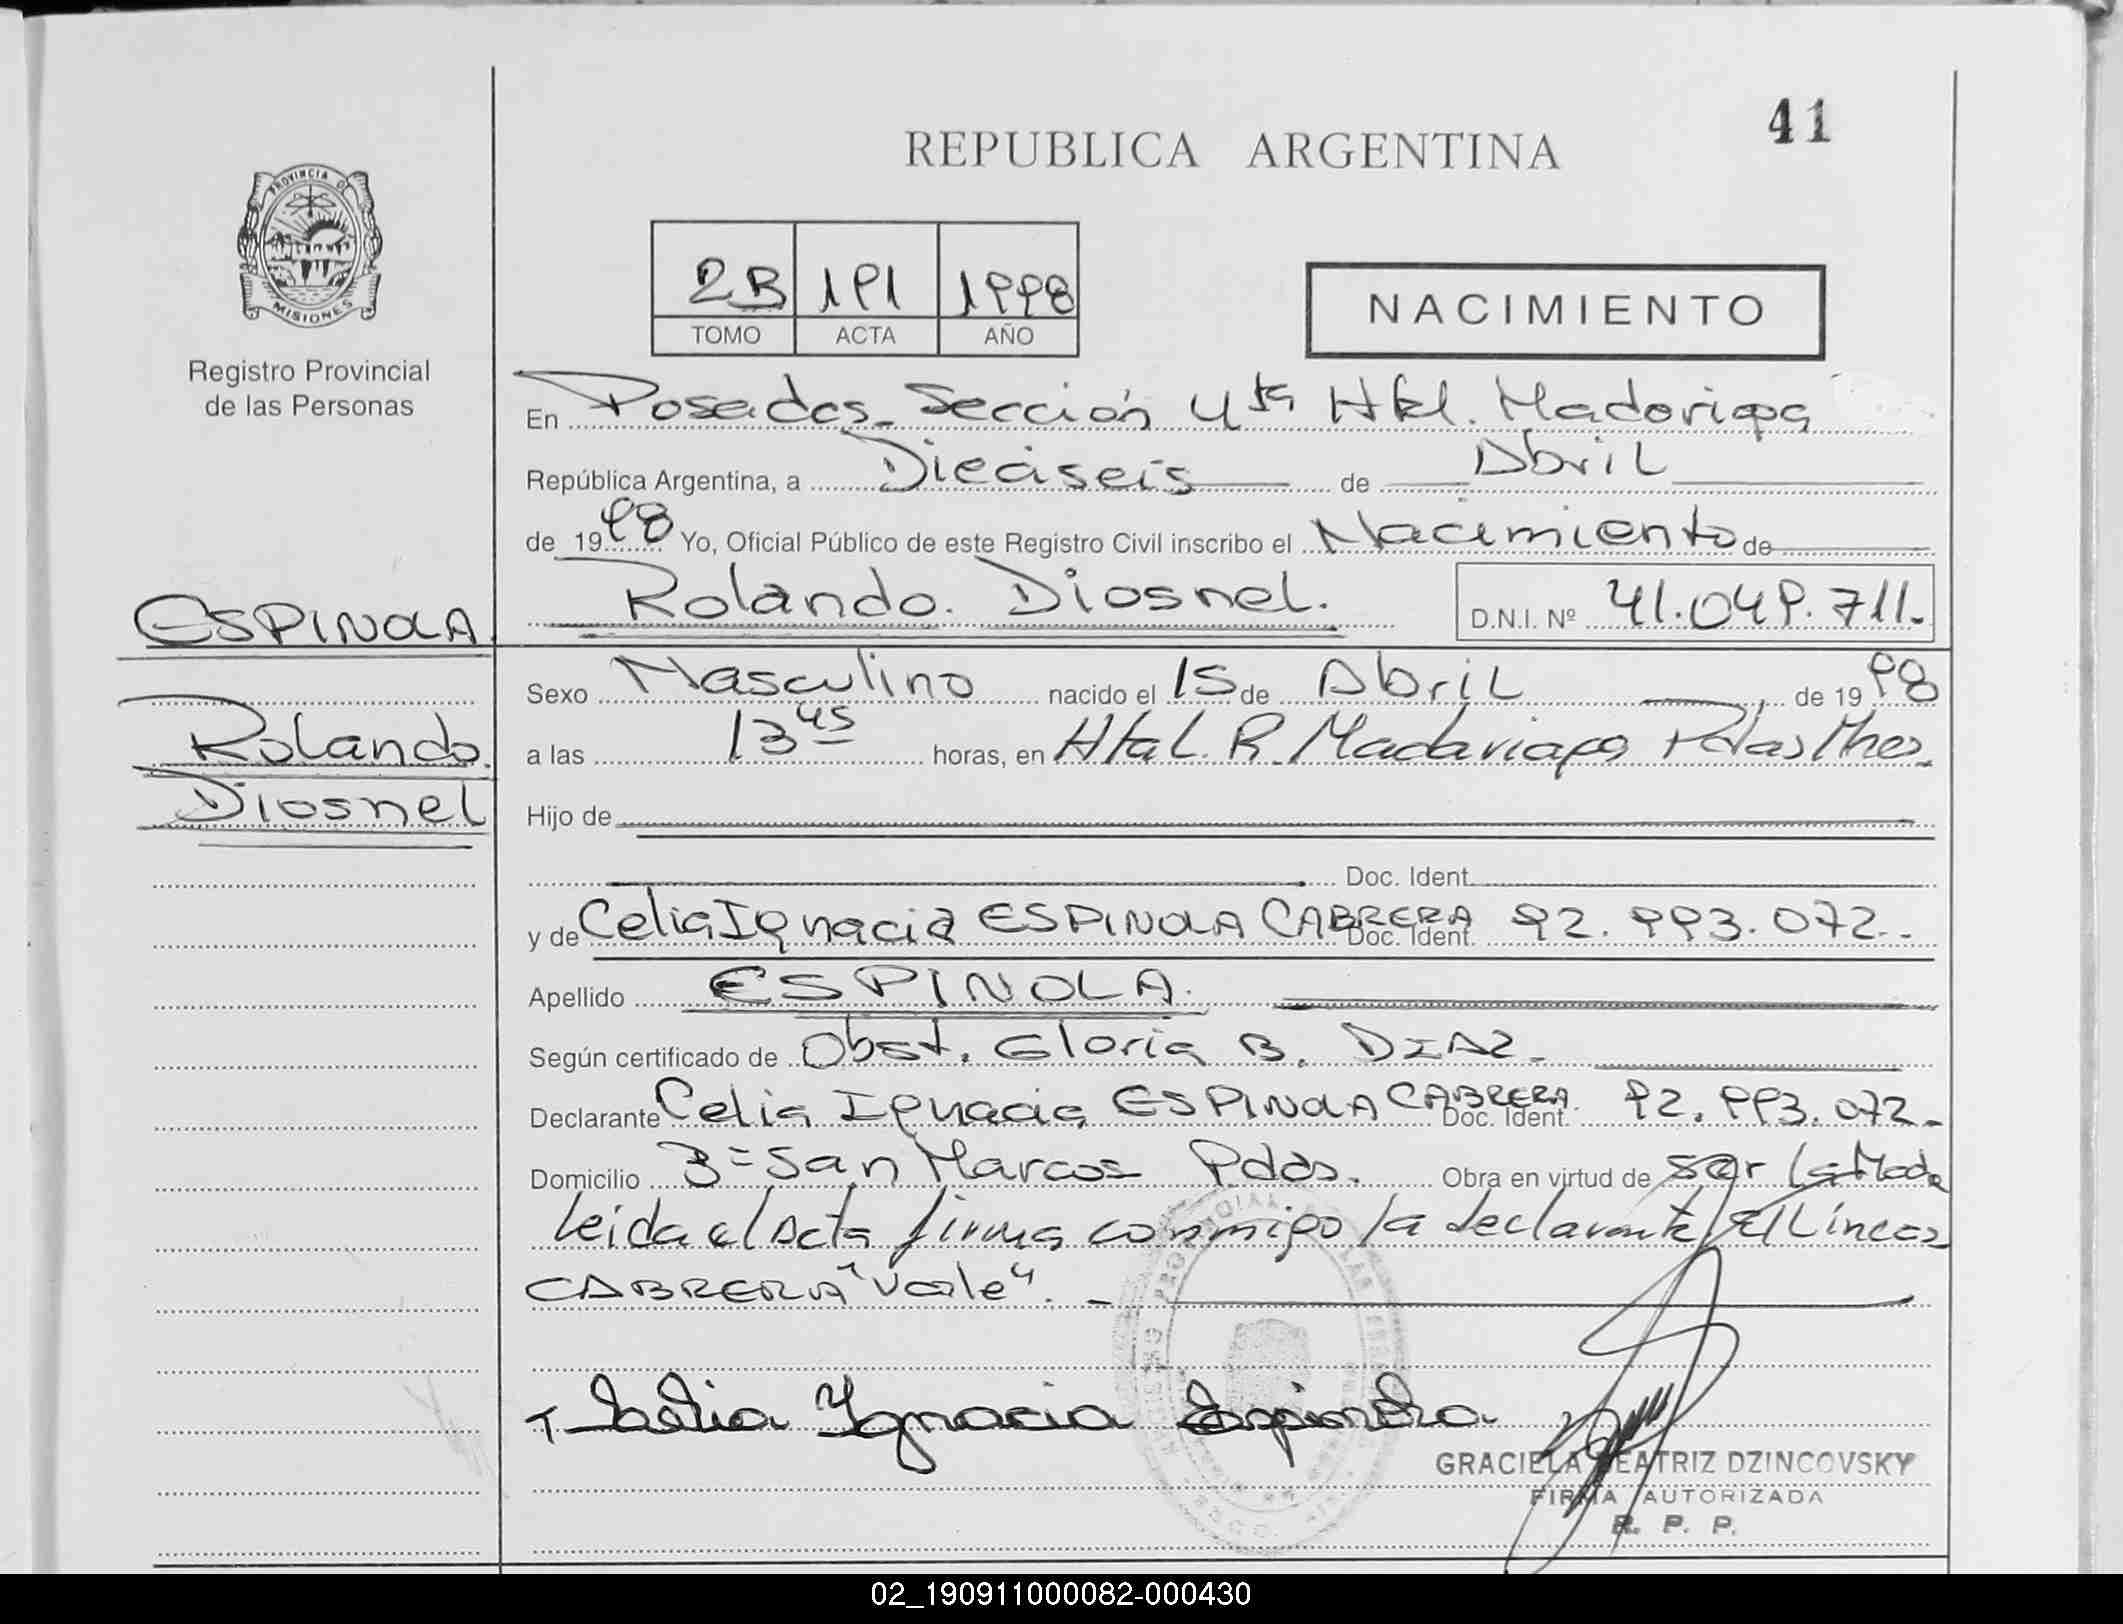 41
REPUBLICA ARGENTINA
PROVINCIA DE
MISIONES
Registro Provincial
de las Personas
2B 191 1998
TOMO ACTA AÑO
NACIMIENTO
En Posadas Sección 4ta Htal. Madariaga
República Argentina, a Dieciseis de Abril
de 1998 Yo, Oficial Público de este Registro Civil inscribo el Nacimiento de
Rolando Diosnel. D.N.I. Nº 41.049.711.-
ESPINOLA
Rolando
Diosnel
Sexo Masculino nacido el 15 de Abril de 1998
a las 13 45 horas, en Htal. R. Madariaga Pdas Mnes.
Hijo de
Doc. Ident.
y de Celia Ignacia ESPINOLA CABRERA Doc. Ident. 92.993.072.-
Apellido ESPINOLA.
Según certificado de Obst. Gloria B. DIAZ.-
Declarante Celia Ignacia ESPINOLA CABRERA Doc. Ident. 92.993.072.-
Domicilio San Marcos Pdas. Obra en virtud de ser la Madre
leida el Acta firma conmigo la declarante E/Lineas
CABRERA "Vale". -
Celia Ignacia Espinola
GRACIELA BEATRIZ DZINCOVSKY
FIRMA AUTORIZADA
R. P. P.
02_190911000082-000430